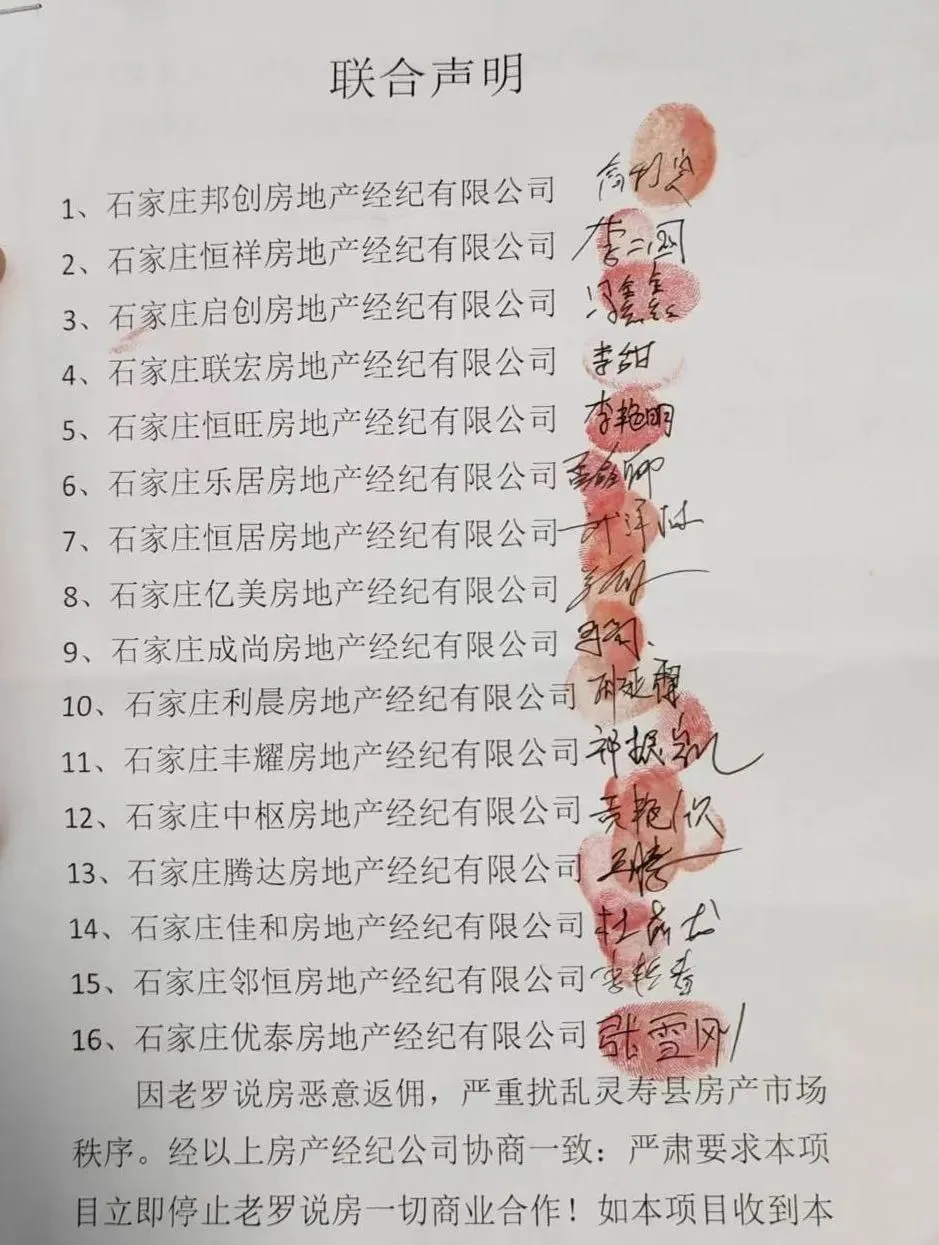 联合声明
1、石家庄邦创房地产经纪有限公司
2、石家庄恒祥房地产经纪有限公司 李二国
3、石家庄启创房地产经纪有限公司
4、石家庄联宏房地产经纪有限公司 李甜
5、石家庄恒旺房地产经纪有限公司 李艳明
6、石家庄乐居房地产经纪有限公司
7、石家庄恒居房地产经纪有限公司
8、石家庄亿美房地产经纪有限公司
9、石家庄成尚房地产经纪有限公司
10、石家庄利晨房地产经纪有限公司
11、石家庄丰耀房地产经纪有限公司 祁振凯
12、石家庄中枢房地产经纪有限公司
13、石家庄腾达房地产经纪有限公司 王腾
14、石家庄佳和房地产经纪有限公司
15、石家庄邻恒房地产经纪有限公司
16、石家庄优泰房地产经纪有限公司 张雪刚
因老罗说房恶意返佣，严重扰乱灵寿县房产市场
秩序。经以上房产经纪公司协商一致：严肃要求本项
目立即停止老罗说房一切商业合作！如本项目收到本